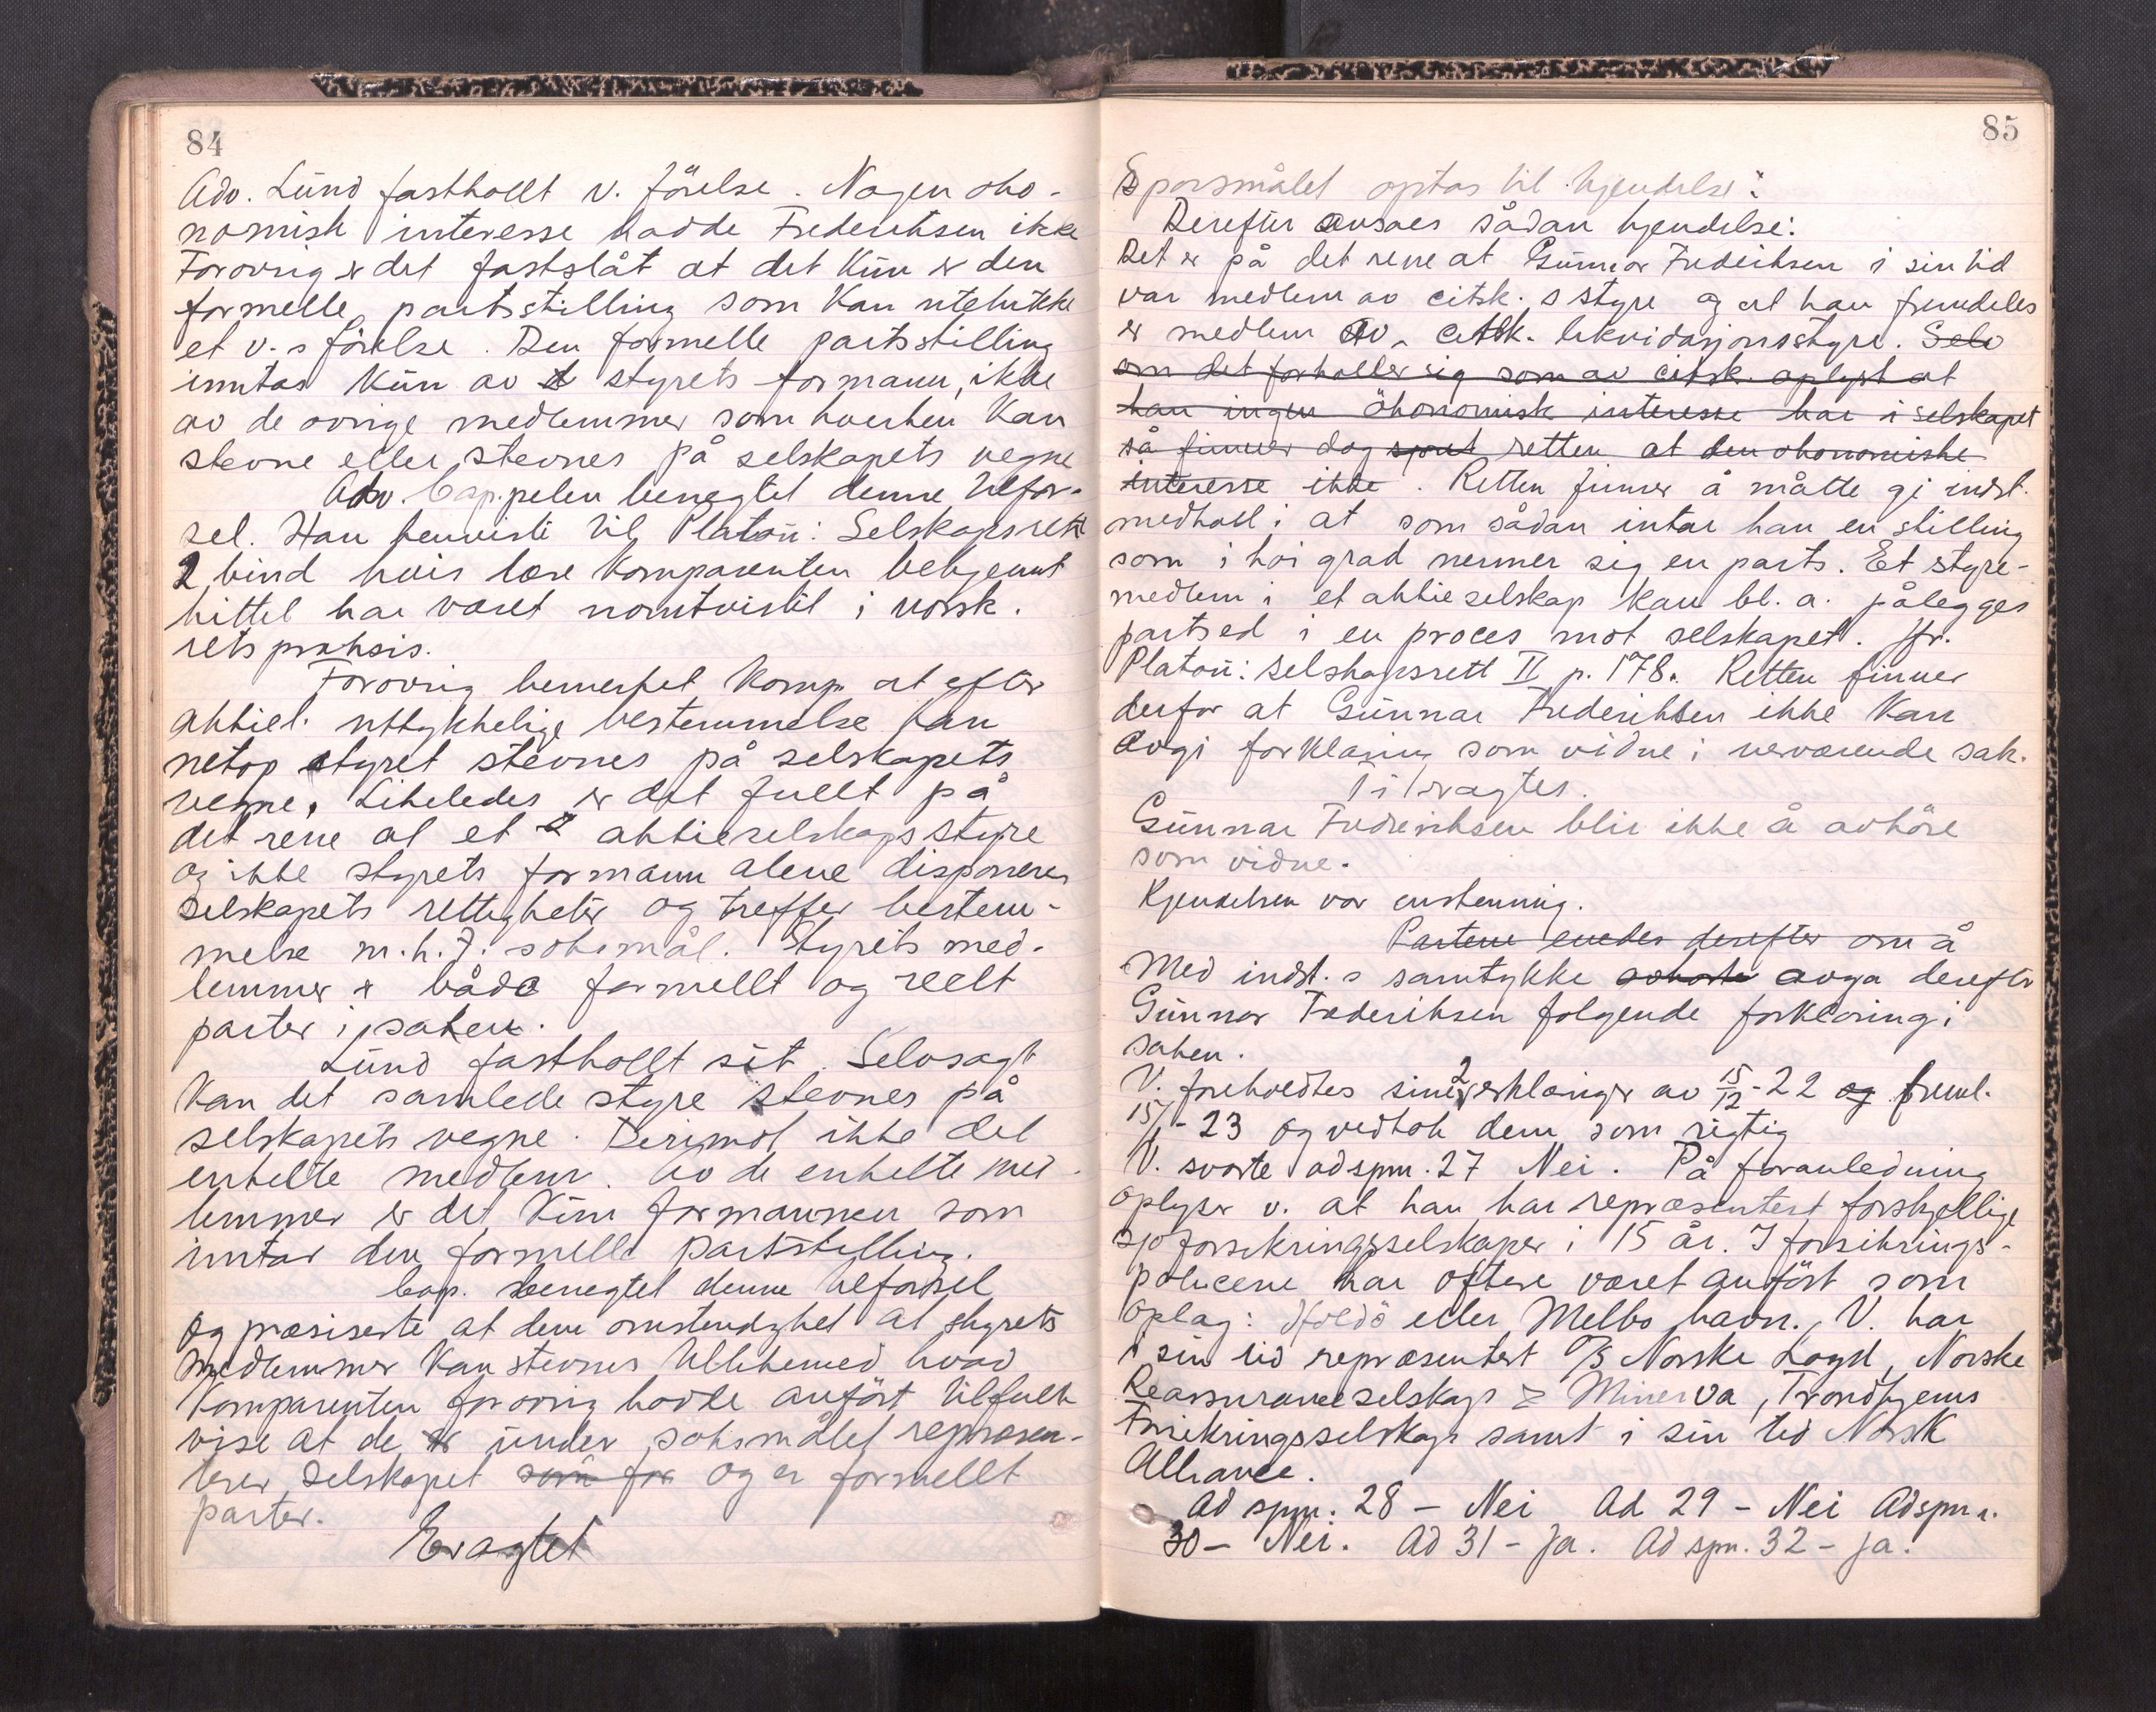 84
Adv. Lünd fastholdt v. förelse. Nogen öko-
nomisk interesse hadde Frederiksen ikke
Forovrig er det fastslåt at det Kün er den
formelle partsstilling som Kan utelukke
et v.s förelse. Den formelle partsstilling
inntas Kün av styrets formann, ikke
av de ovrige medlemmer som hverken Kan
stevne eller stevnes på selskapets vegne
Adv. Cappelen benegtet denne utfor-
sel. Han henviste til Platoü: Selskapsrett
2 bind hvis lære Komparenten bekjennt
hittil har været uomtvistet i norsk.
retspraksis.
Forovrig bemerket Komp. at efter
aktiel. uttrykkelige bestemmelse kan
netop styret stevnes på selskapets
vegne. Likeledes er det fullt på
det rene at et aktieselskaps styre
og ikke styrets formann alene disponerer
selskapets rettigheter og treffer bestem-
melse m.h.t. söksmål. Styrets med-
lemmer er både formellt og reelt
parter i saken.
Lünd fastholdt sit. Selvsagt
Kan det samlede styre stevnes på
selskapets vegne. Derimot ikke det
enkelte medlem. Av de enkelte med-
lemmer er det Kün formannen som
inntar den formelle partsstilling.
Cap. benegtet denne utforsel
og præsiserte at den omstendighet at styrets
medlemmer Kan stevnes tillikemed hvad
Komparenten forovrig hadde anfört tilfulle
vise at de ünder söksmålet represen-
terer selskapet som for og er formellt
parter.
Eragtet
85
Sporsmålet optas til kjendelse:
Derefter avsaes sådan kjendelse:
Det er på det rene at Günnar Frederiksen i sin tid
var medlem av citsk.s styre og at han fremdeles
er medlem av citsk. likvidasjonsstyre. Selv
om det forholder sig som av citsk. oplyst at
han ingen ökonomisk interesse har i selskapet
så finner dog retten at den ökonomiske
interesse ikke. Retten finner å måtte gi indst.
medhold i at som sådan intar han en stilling
som i höi grad nermer sig en parts. Et styre-
medlem i et aktieselskap kan bl. a. pålegges
partsed i en proces mot selskapet. Jfr.
Platoü: Selskapsrett II p. 178. Retten finner
derfor at Günnar Frederiksen ikke Kan
avgi forklaring som vidne i nerværende sak.
Ti eragtes.
Günnar Frederiksen blir ikke å avhöre
som vidne.
Kjendelsen var enstemmig.
Partene enedes derefter om å
Med indst.s samtykke avhorte avga derefter
Günnar Frederiksen folgende forklaring i
saken.
V. foreholdtes sine 2 erklæringer av 15/12-22 og freml.
15/1-23 og vedtok dem som rigtig
V. svarte ad spm. 27 Nei. På foranledning
oplyser v. at han har repræsentert forskjellige
sjoforsikringsselskaper i 15 år. I forsikrings-
policene har oftere været anfört som
oplag: Holdö eller Melbo havn. V. har
i sin tid repræsentert A/S Norske Loyd, Norske
Reassuranceselskap Minerva, Trondhjems
Forsikringsselskap samt i sin tid Norsk
Alliance.
Ad spm. 28 – Nei Ad 29 – Nei Ad spm.
30 – Nei. Ad 31 – Ja. Ad spm. 32 – Ja.